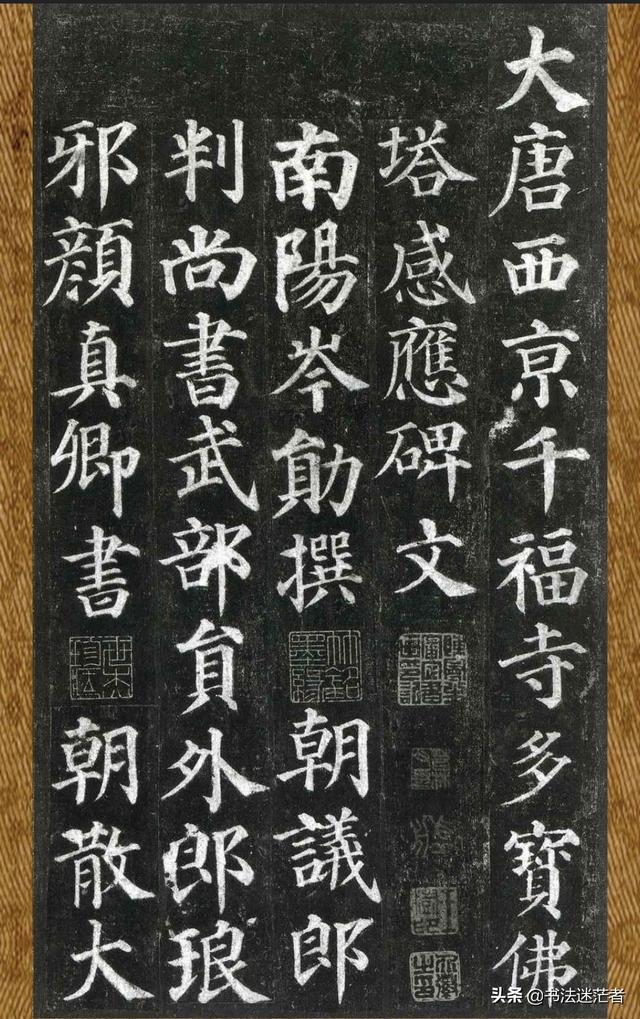 大唐西亰千福寺多寳佛
塔感應碑文
南陽岑勛撰 朝議郎
判尚書武部貟外郎琅
邪顔真卿書 朝散大
头条 @书法迷茫者